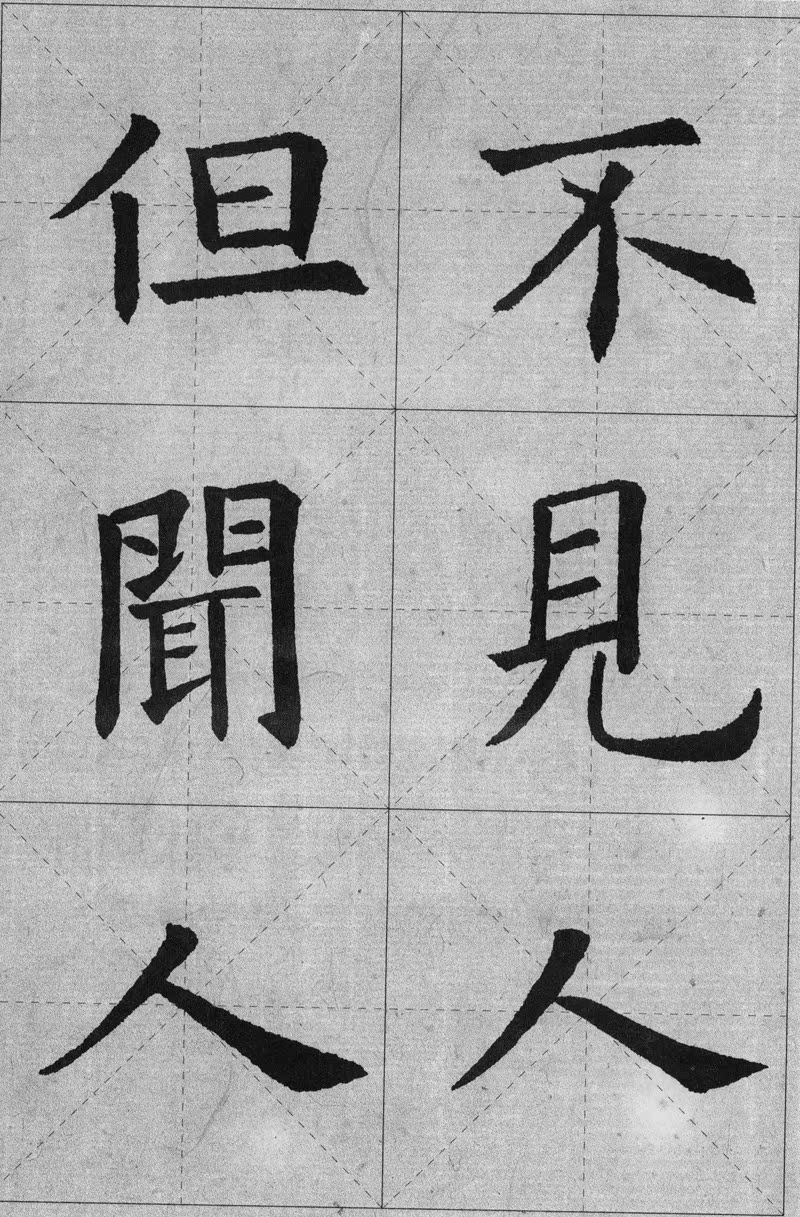 不見人
但聞人